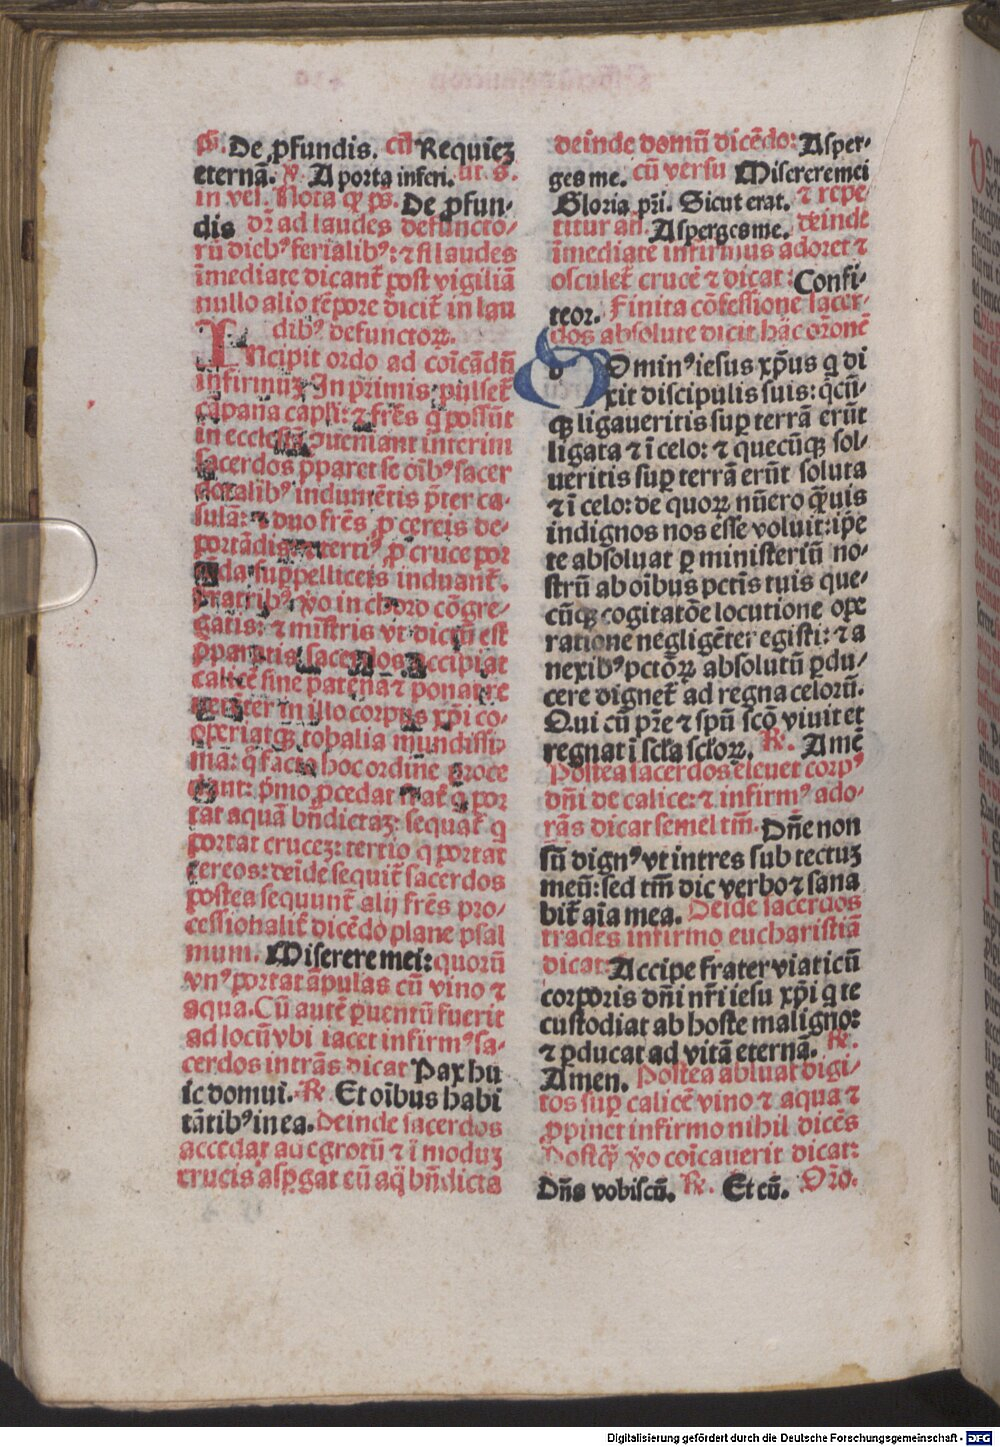 ps. De ꝓfundis. cū Requieȝ
eternā. ꝟ. A porta inferi. ut s.
in ves. Nota ꝙ ps. De ꝓfun-
dis dr̄ ad laudes defuncto/
rū diebꝰ ferialibꝰ: ⁊ si laudes
īmediate dicant̄ post vigiliā
nullo alio tēpore dicit̄ in lau
dibꝰ defunctoꝝ.
INcipit ordo ad coīcādū
infirmuȝ. In primis pulset̄
cāpana capłi: ⁊ frēs q̄ possūt
in ecclesiā ꝯueniant interim
sacerdos p̄paret se oībꝰ sacer
dotalibꝰ indumētis p̄ter ca-
sulā: ⁊ duo frēs ꝓ cereis de-
portādis: ⁊ tertiꝰ ꝓ cruce por
tāda suppelliceis induant̄.
Fratribꝰ ꝟo in choro cōgre-
gatis: ⁊ mīstris vt dictū est
p̄paratis sacerdos accipiat
calicē sine patena ⁊ ponat re
uerēter in illo corpus xp̄i co-
operiatqꝫ tobalia mundissi-
ma: q̄ facto hoc ordine proce
dant: p̄mo p̄cedat frat̄ q̄ por
tat aquā bn̄dictaȝ: sequat̄ q̄
portat cruceȝ: tertio q portat
cereos: deīde sequit̄ sacerdos
postea sequunt̄ alij frēs pro/
cessionalit̄ dicēdo plane psal
mum. Miserere mei: quorū
vnꝰ portat āpulas cū vino ⁊
aqua. Cū autē ꝑuentū fuerit
ad locū vbi iacet infirmꝰ sa-
cerdos intrās dicat Pax hu
ic domui. ℞. Et oībus habi
tātibꝰ in ea. Deinde sacerdos
accedat au egrotū ⁊ ī moduȝ
crucis aspgat cū aq̄ bn̄dicta
deinde domū dicēdo: Asper-
ges me. cū versu Miserere mei
Gloria pr̄i. Sicut erat. ⁊ repe
titur an̄. Asperges me. deinde
īmediate infirmus adoret ⁊
osculet̄ crucē ⁊ dicat: Confi-
teor. Finita cōfessione sacer-
dos absolute dicit hāc orōnē
DOminꝰ iesus xp̄us q di
xit discipulis suis: qūc-
qꝫ ligaueritis suꝑ terrā erūt
ligata ⁊ ī celo: ⁊ quecūqꝫ sol-
ueritis suꝑ terrā erūt soluta
⁊ ī celo: de quoꝝ nūero q̄uis
indignos nos esse voluit: ip̄e
te absoluat ꝑ ministeriū no-
strū ab oībus pctīs tuis que-
cūqꝫ cogitatōe locutione ope
ratione negligēter egisti: ⁊ a
nexibꝰ pctōꝝ absolutū ꝑdu/
cere dignet̄ ad regna celorū.
Qui cū pr̄e ⁊ spū scō viuit et
regnat ī scła scłoꝝ. ℞. Amē
Postea sacerdos eleuet corpꝰ
dn̄i de calice: ⁊ infirmꝰ ado-
rās dicat semel tm̄. Dn̄e non
sū dignꝰ vt intres sub tectuȝ
meū: sed tm̄ dic verbo ⁊ sana
bit̄ aīa mea. Deīde sacerdos
trades infirmo eucharistiā
dicat: Accipe frater viaticū
corporis dn̄i nr̄i iesu xp̄i q te
custodiat ab hoste maligno:
⁊ ꝑducat ad vitā eternā. ℞.
Amen. Postea abluat digi/
tos suꝑ calicē vino ⁊ aqua ⁊
ꝓpinet infirmo nihil dicēs
Postqꝫ ꝟo coīcauerit dicat:
Dn̄s vobiscū. ℞. Et cū. Orō.
Digitalisierung gefördert durch die Deutsche Forschungsgemeinschaft - DFG